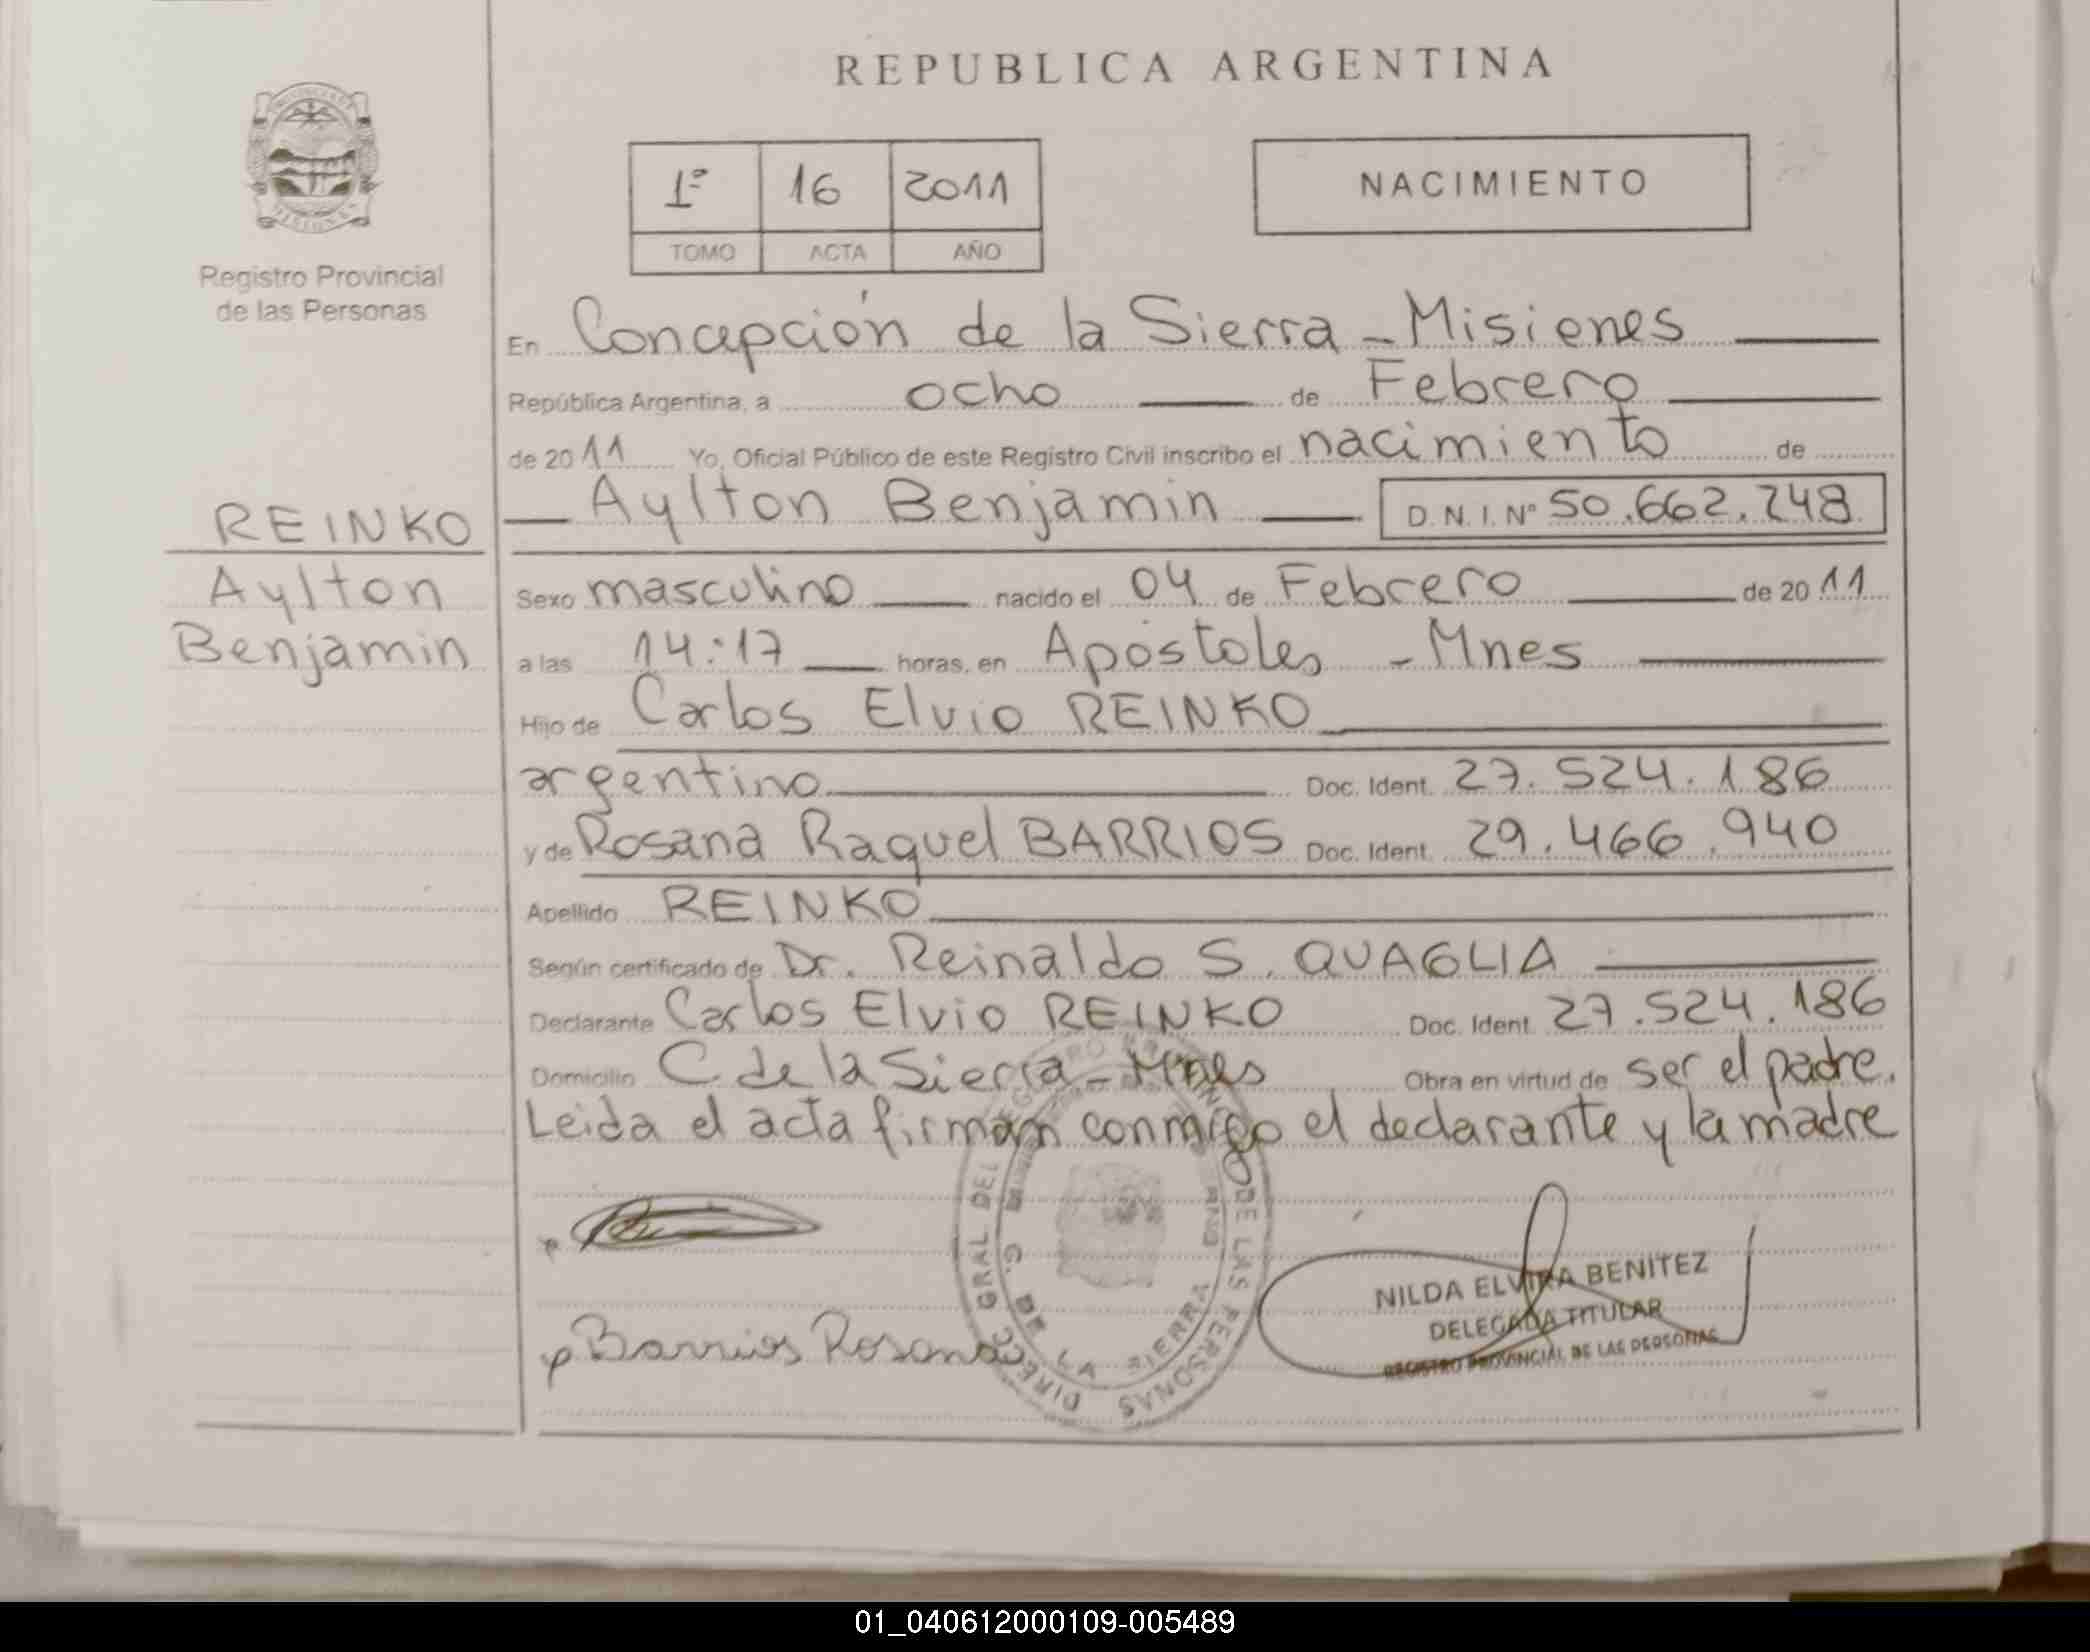 REPUBLICA ARGENTINA
1º 16 2011
TOMO ACTA AÑO
NACIMIENTO
Registro Provincial
de las Personas
En Concepción de la Sierra - Misiones
República Argentina, a ocho de Febrero
de 2011 Yo, Oficial Público de este Registro Civil inscribo el nacimiento de
Aylton Benjamin D.N.I. Nº 50.662.248
REINKO
Aylton
Benjamin
Sexo masculino nacido el 04 de Febrero de 2011
a las 14:17 horas, en Apóstoles - Mnes
Hijo de Carlos Elvio REINKO
argentino Doc. Ident. 27.524.186
y de Rosana Raquel BARRIOS Doc. Ident. 29.466.940
Apellido REINKO
Según certificado de Dr. Reinaldo S. QUAGLIA
Declarante Carlos Elvio REINKO Doc. Ident. 27.524.186
Domicilio C de la Sierra - Mnes Obra en virtud de ser el padre.
Leida el acta firman conmigo el declarante y la madre
Barrios Rosana
DIRECC GRAL DEL REGISTRO DE LAS PERSONAS
C. DE LA SIERRA
NILDA ELVIRA BENITEZ
DELEGADA TITULAR
REGISTRO PROVINCIAL DE LAS PERSONAS
01_040612000109-005489